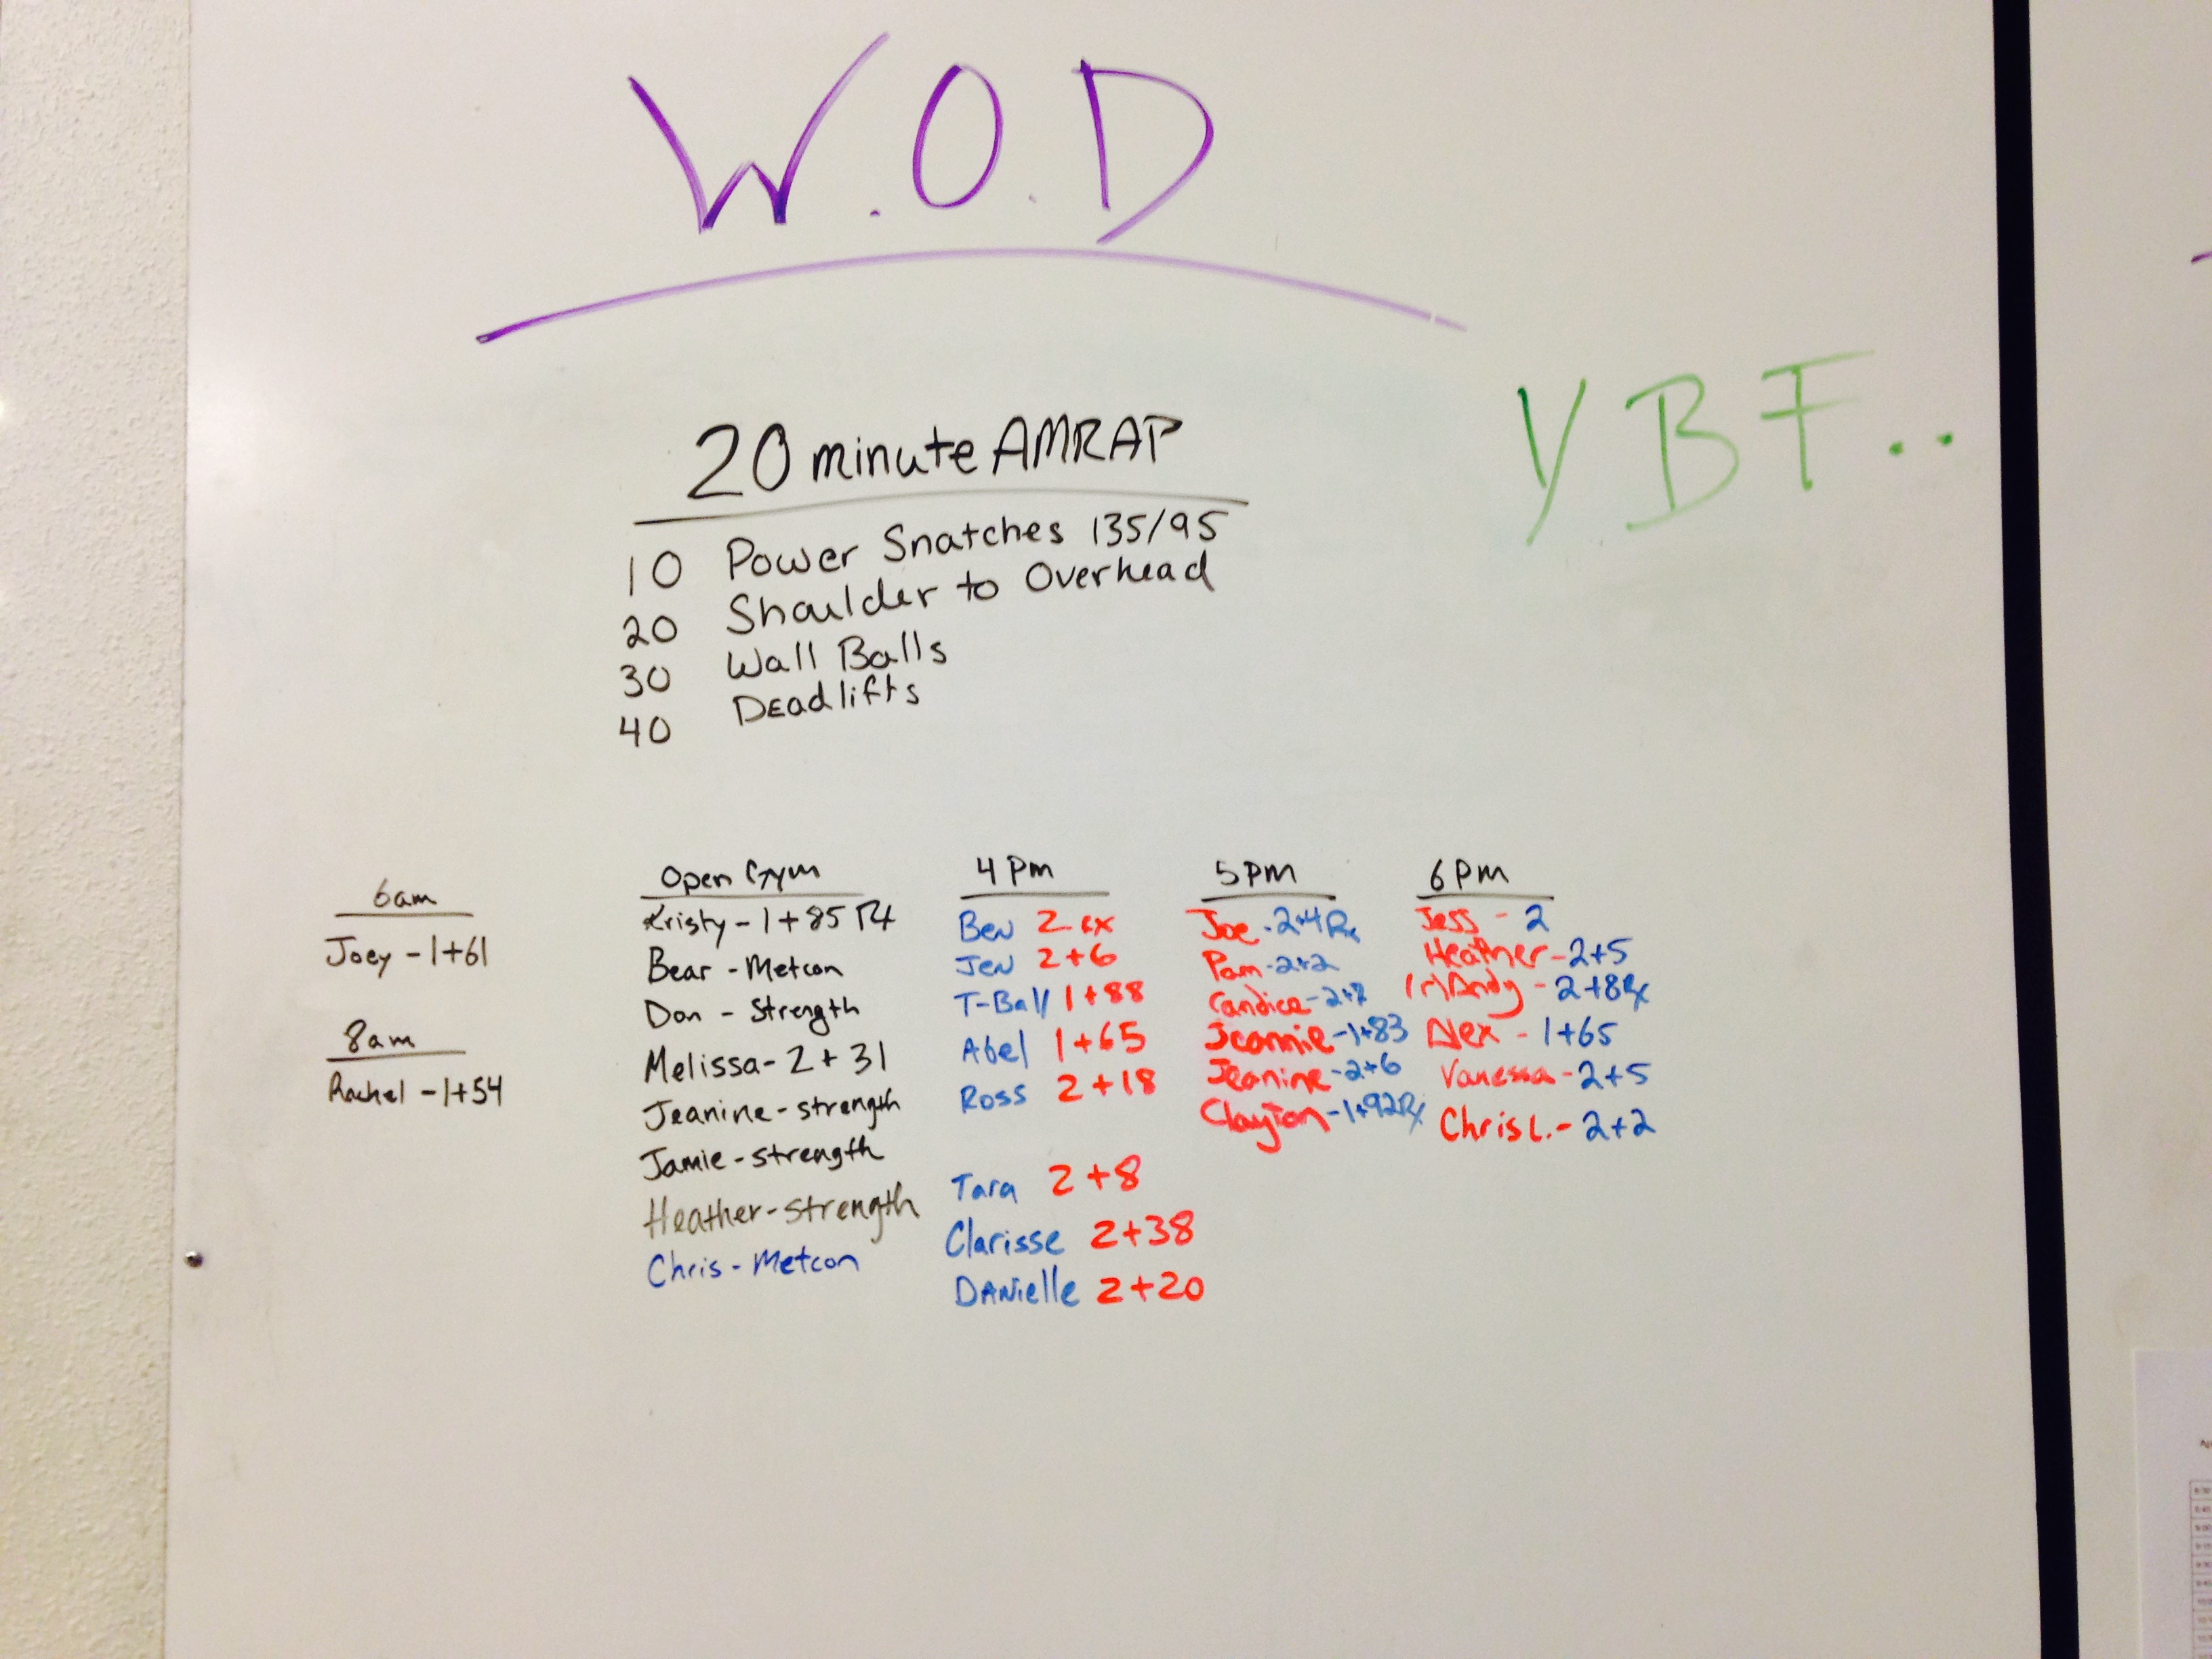 W.O.D
YBF..
20 minute AMRAP
10 Power Snatches 135/95
20 Shoulder to Overhead
30 Wall Balls
40 Deadlifts
6am
Joey - 1+61
8am
Rachel - 1+54
Open Gym
Kristy - 1+85 Rx
Bear - Metcon
Don - Strength
Melissa - 2+31
Jeanine - strength
Jamie - strength
Heather - strength
Chris - Metcon
4 Pm
Ben 2 rx
Jen 2+6
T-Ball 1+88
Abel 1+65
Ross 2+18
Tara 2+8
Clarisse 2+38
DANielle 2+20
5pm
Joe - 2+4 Rx
Pam - 2+2
Candice -
Jeannie - 1+83
Jeanine - 2+6
Clayton - 1+92 Rx
6pm
Jess - 2
Heather - 2+5
(r)Andy - 2+8 Rx
Alex - 1+65
Vanessa - 2+5
Chris L. - 2+2